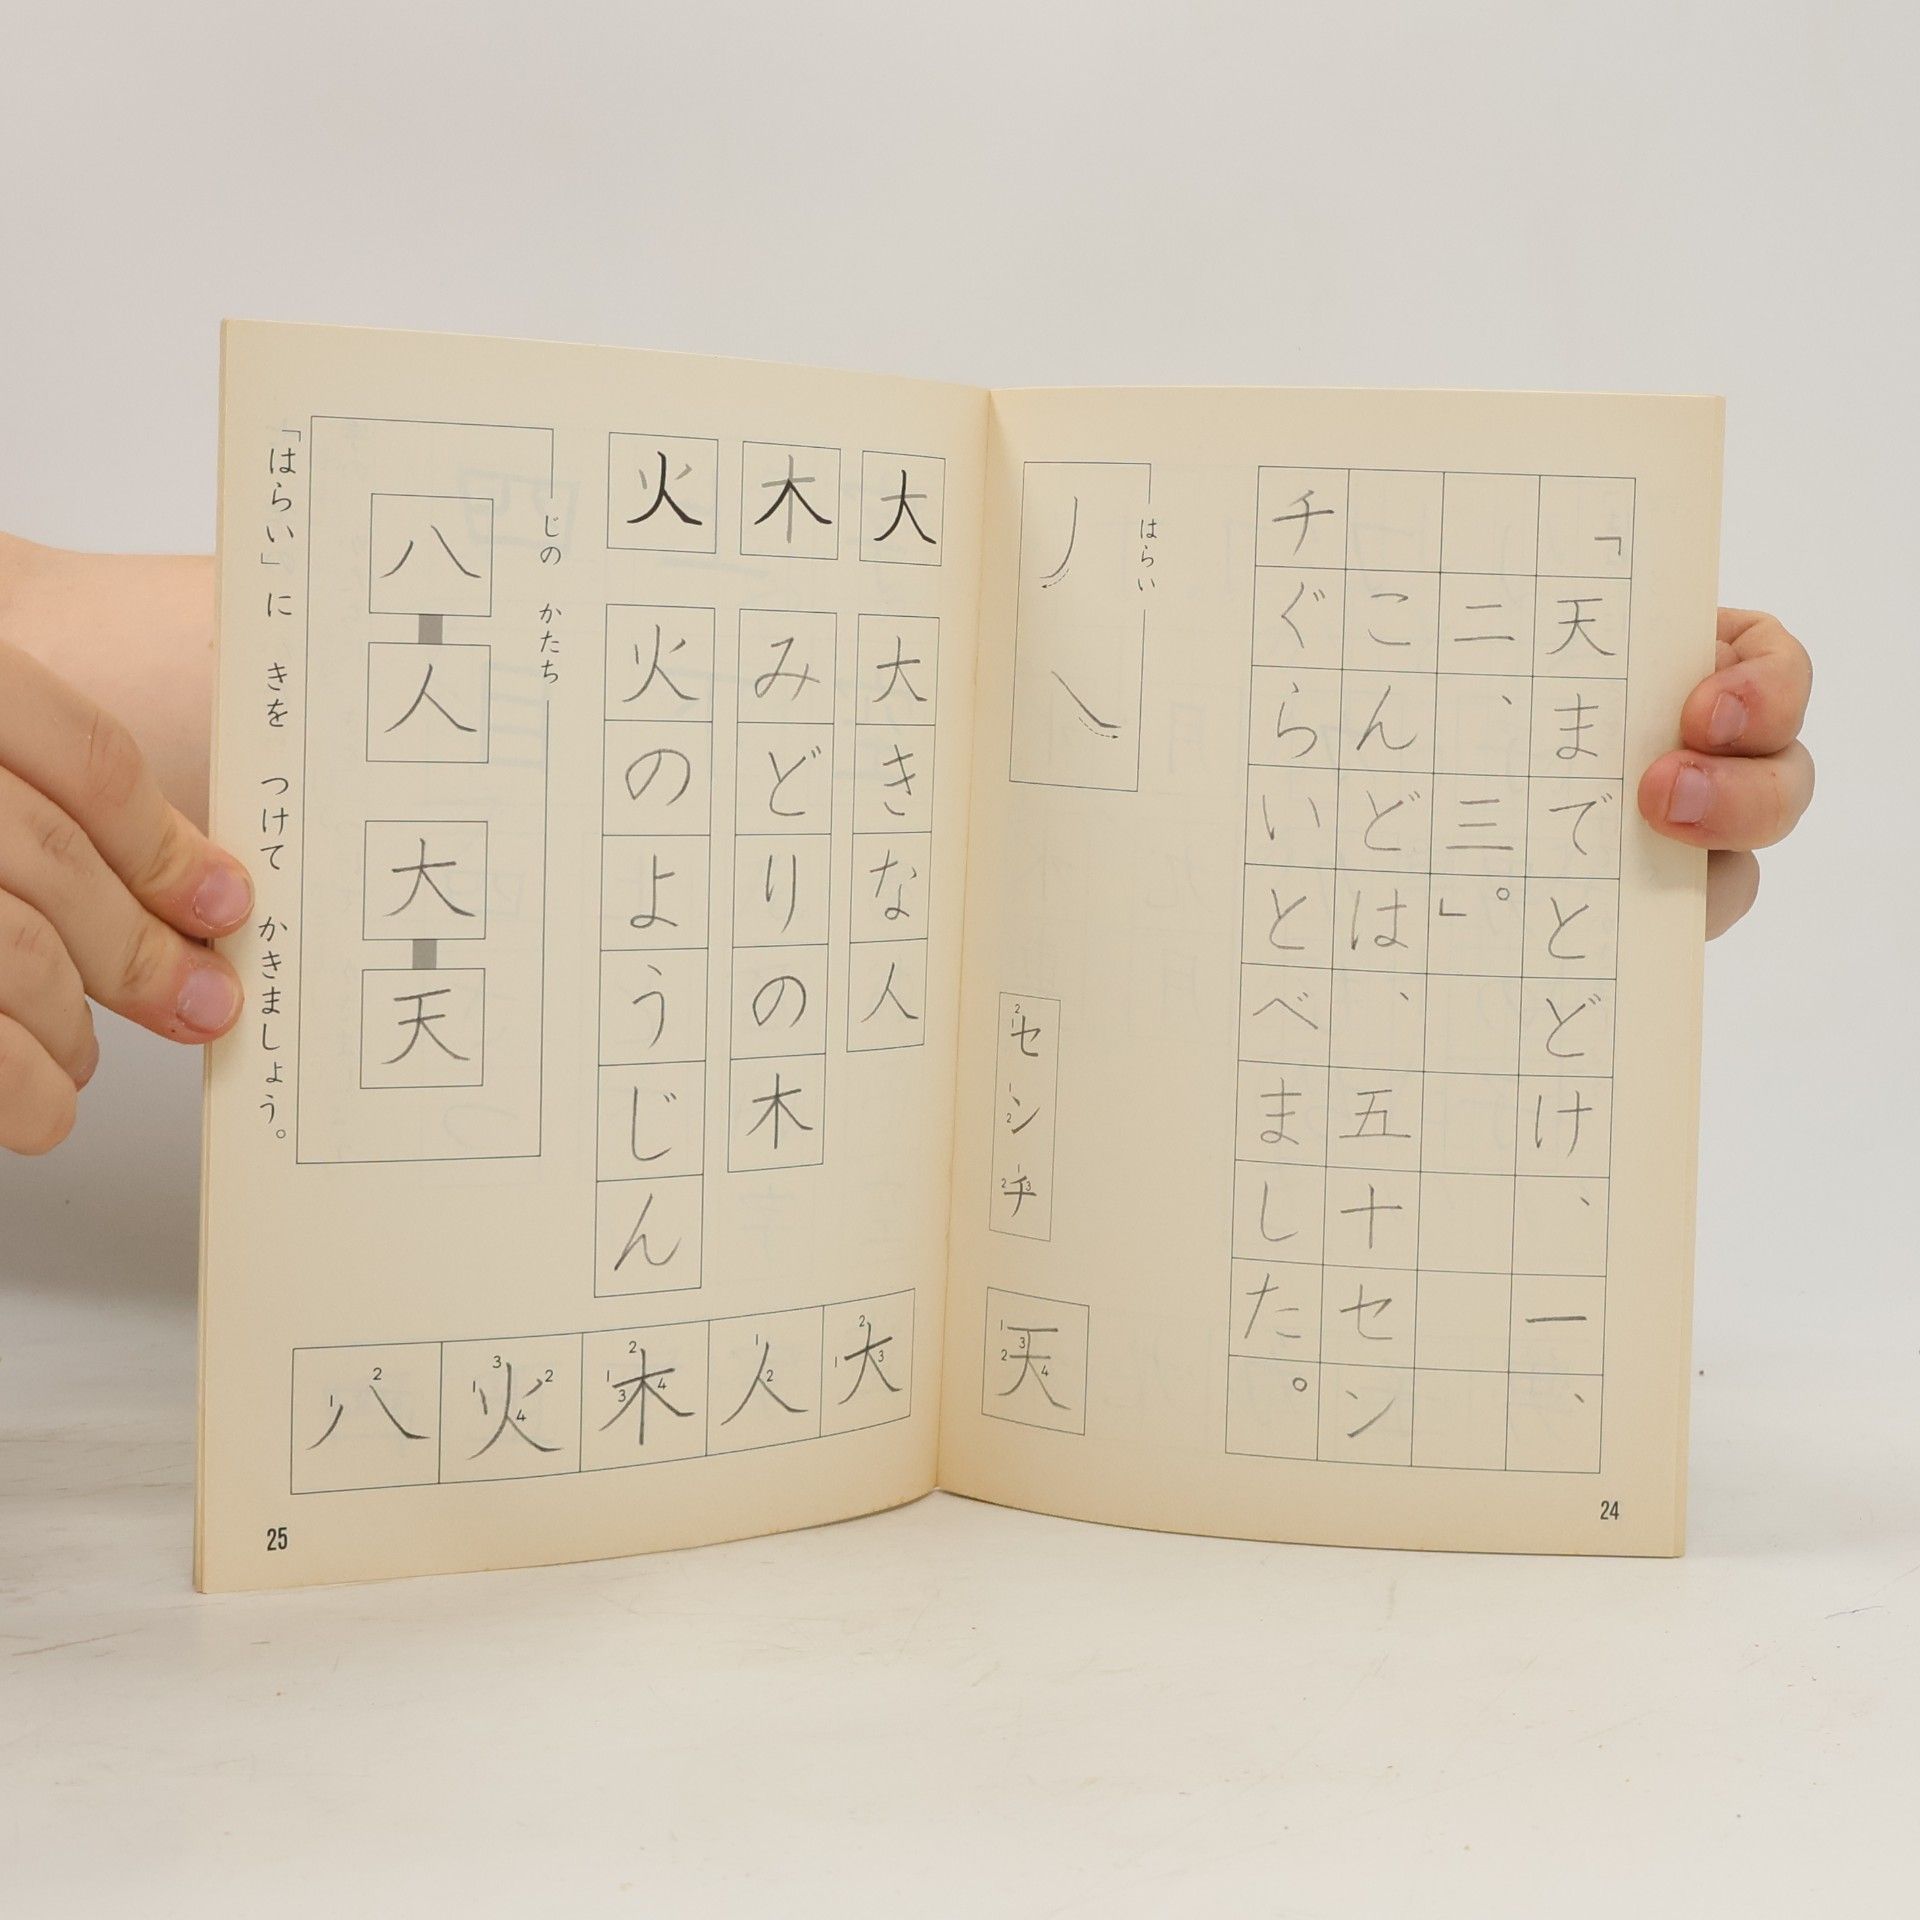 「天までとどけ、一、
二、三。」
こんどは、五十セン
チぐらいとべました。
はらい
セシチ
天
24
大
大きな人
木
みどりの木
火
火のようじん
じの かたち
八人
大天
「はらい」に きを つけて かきましょう。
大人木火八
25